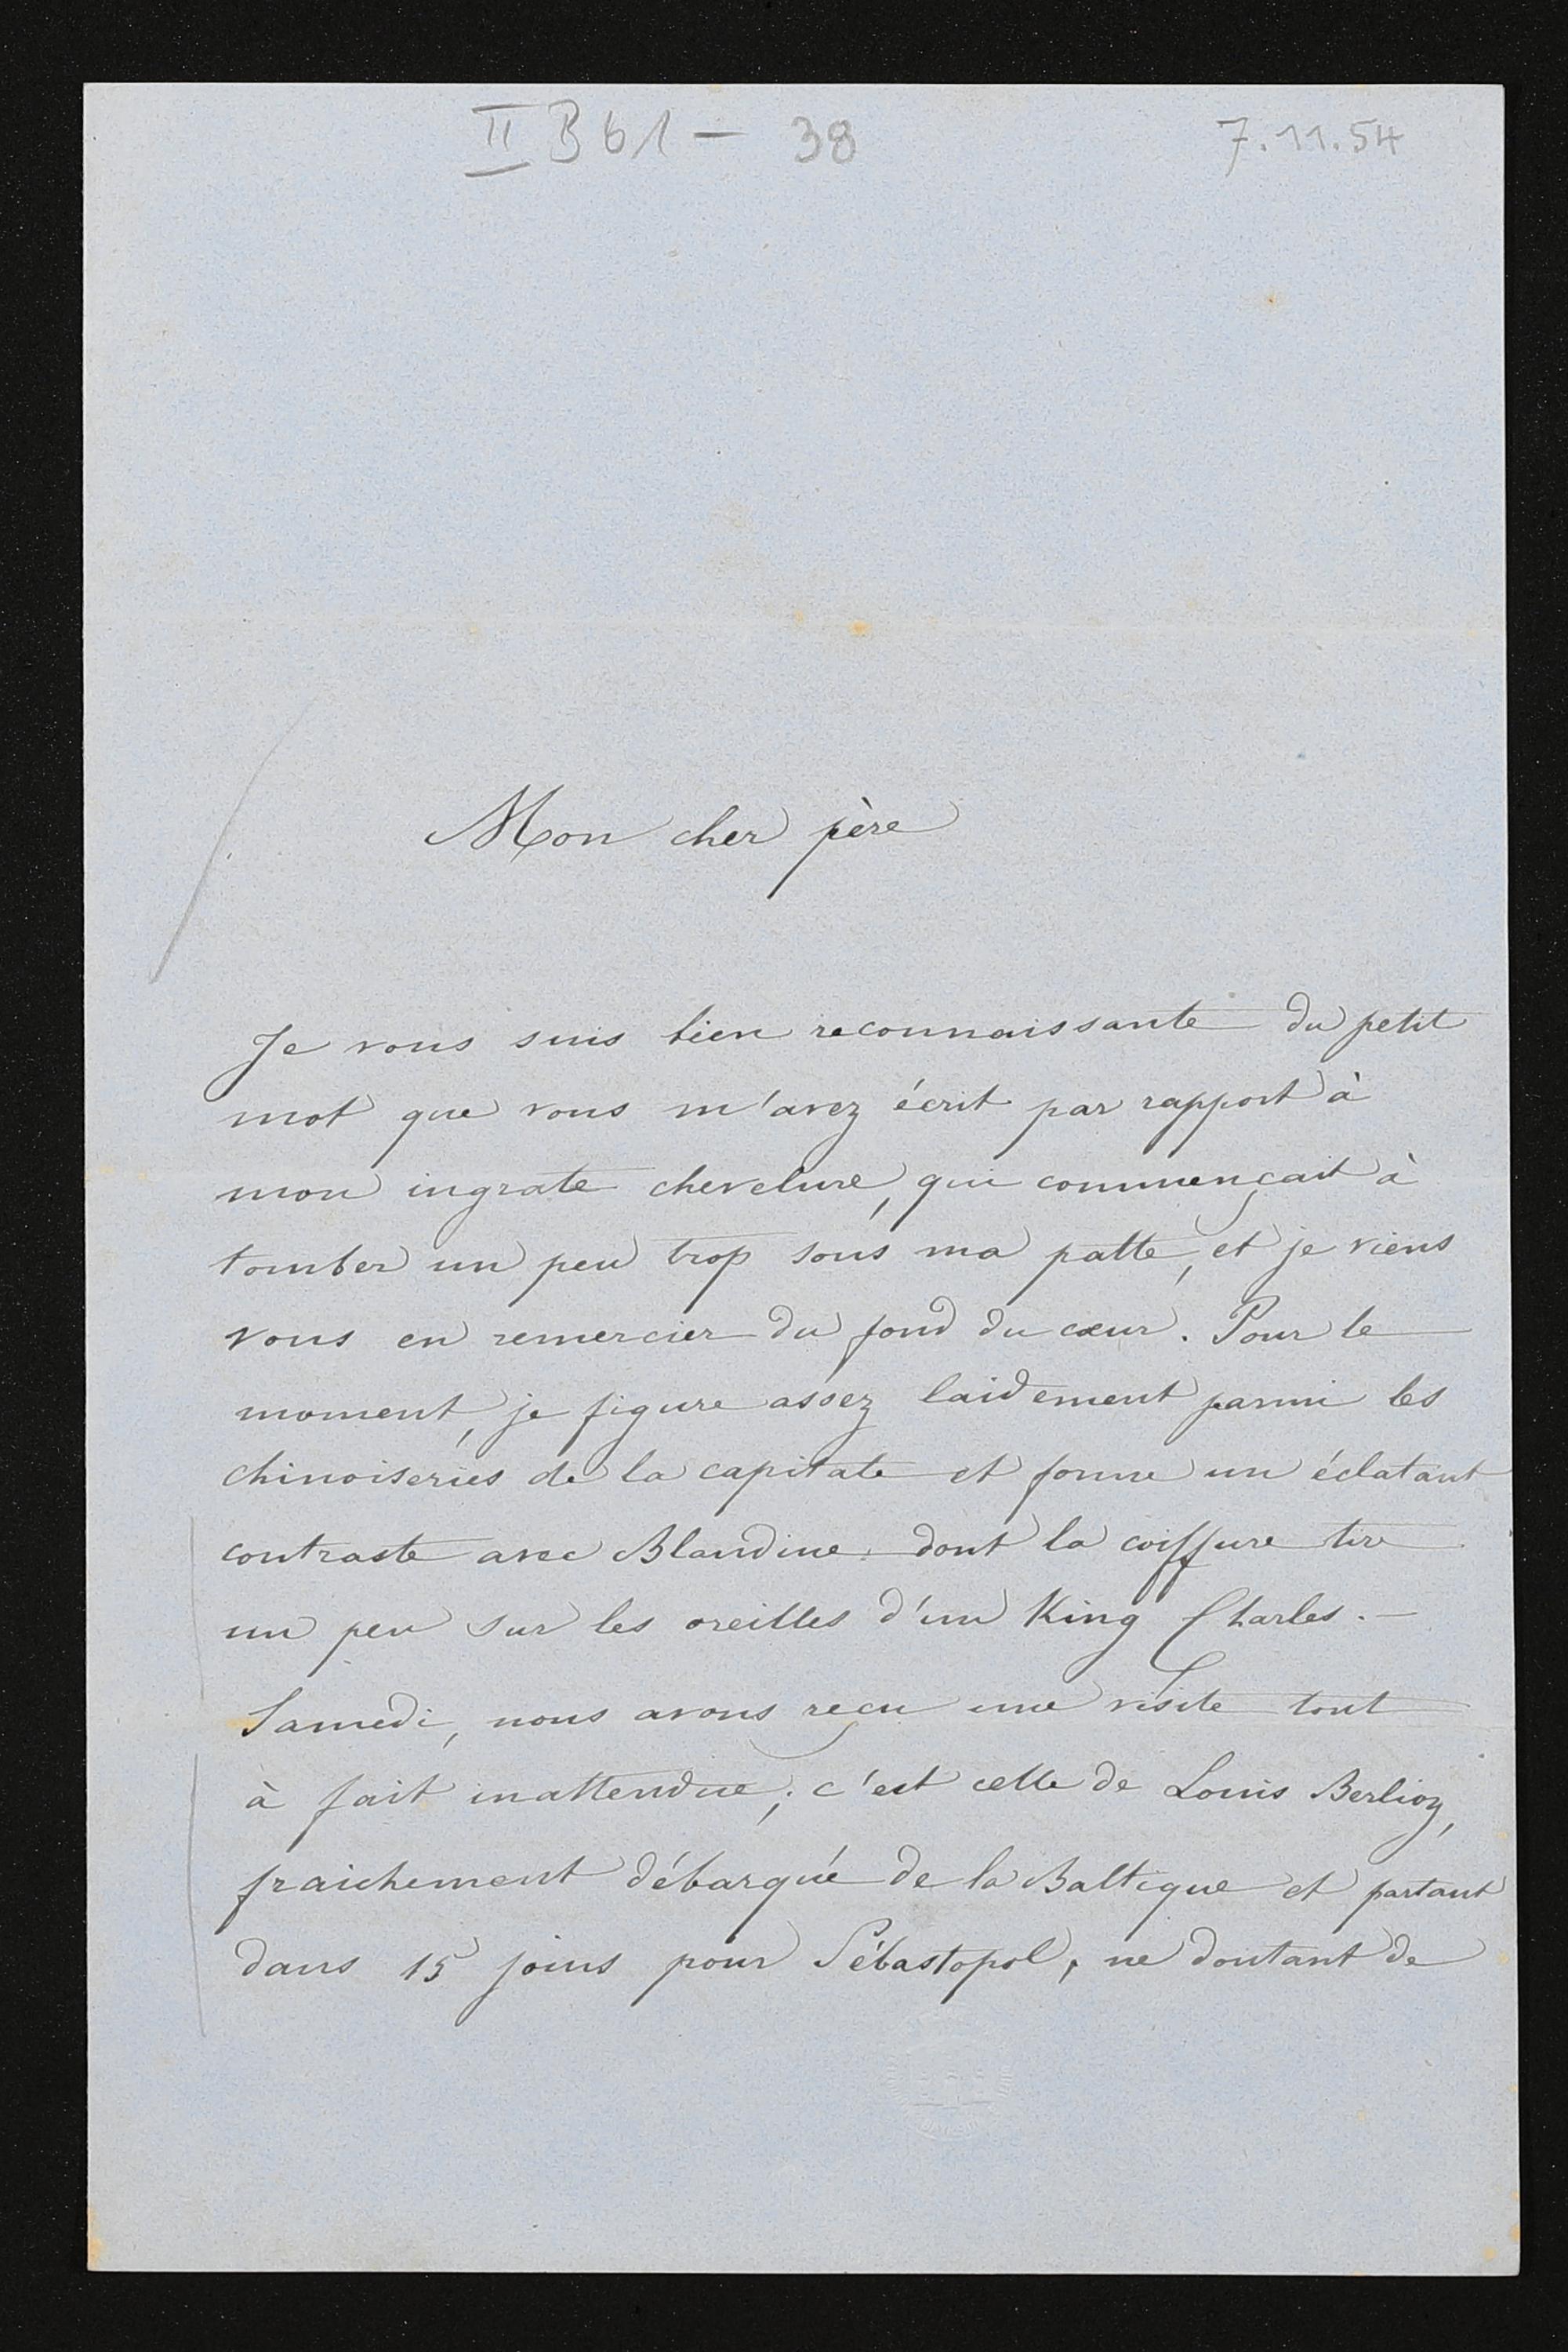 II B 61 - 38 7.11.54
Mon cher père
Je vous suis bien reconnaissante du petit
mot que vous m'avez écrit par rapport à
mon ingrate chevelure, qui commençait à
tomber un peu trop sous ma patte, et je viens
vous en remercier du fond du cœur. Pour le
moment, je figure assez laidement parmi les
chinoiseries de la capitale et forme un éclatant
contraste avec Blandine dont la coiffure tire
un peu sur les oreilles d'un King Charles. -
Samedi, nous avons reçu une visite tout
à fait inattendue; c'est celle de Louis Berlioz,
fraichement débarqué de la Baltique et partant
dans 15 jours pour Sébastopol, ne doutant de